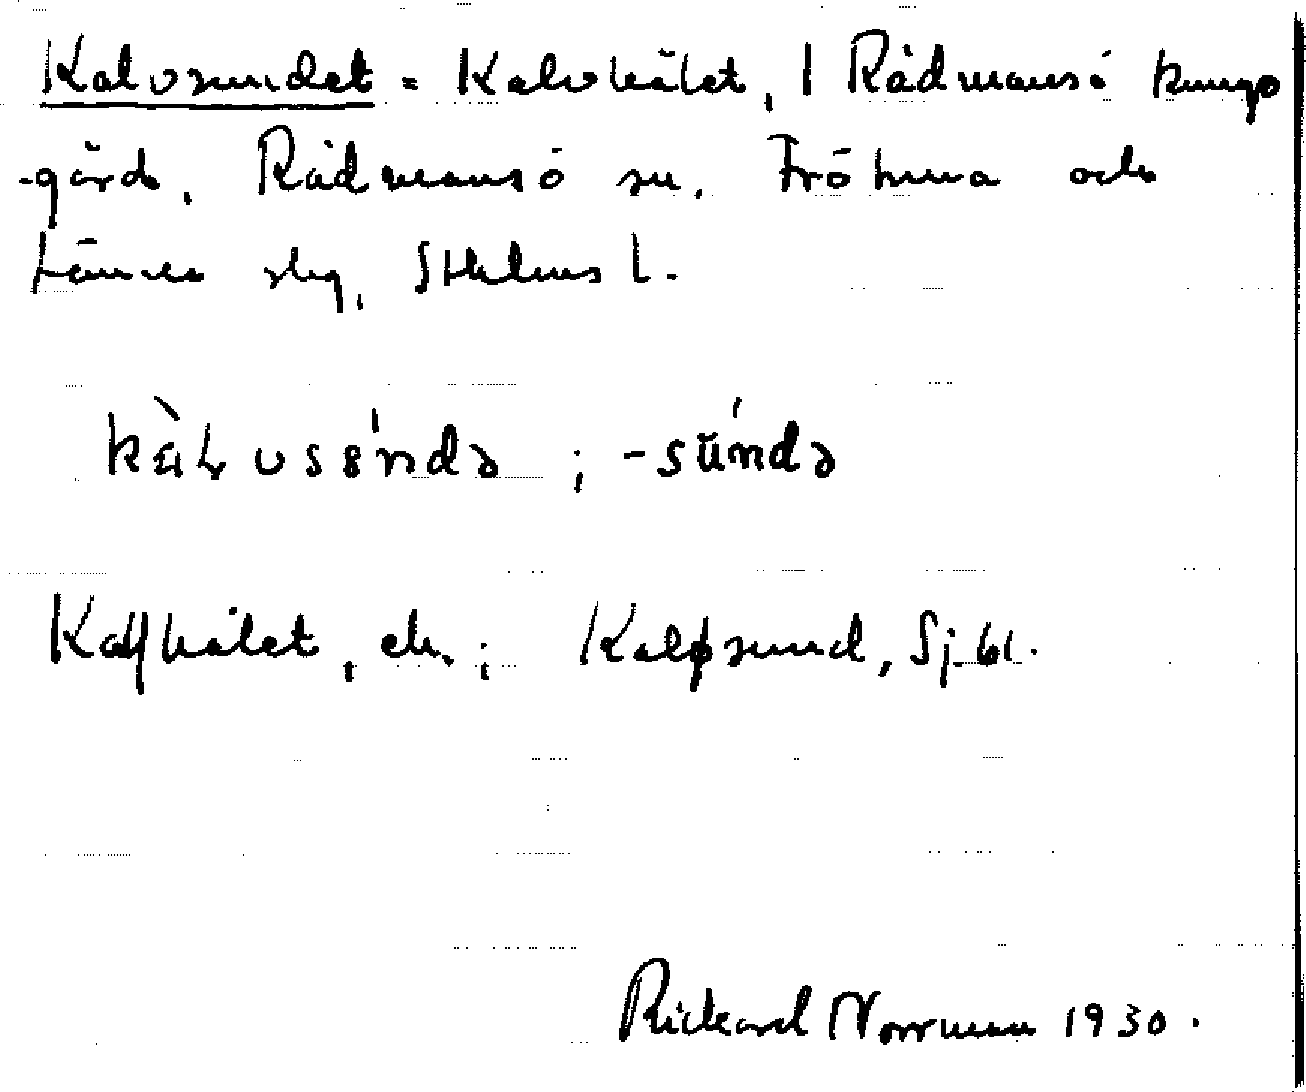 Kalvsundet = Kalvhålet, 1 Rådmansö kungs
-gård, Rådmansö sn. Frötuna och
Länna slg, Sthlms l.
kàlvsśndə ; -sśndə
Kalfhålet, ek.; Kalfsund, Sj.bl.
Rickard Norrman 1930.